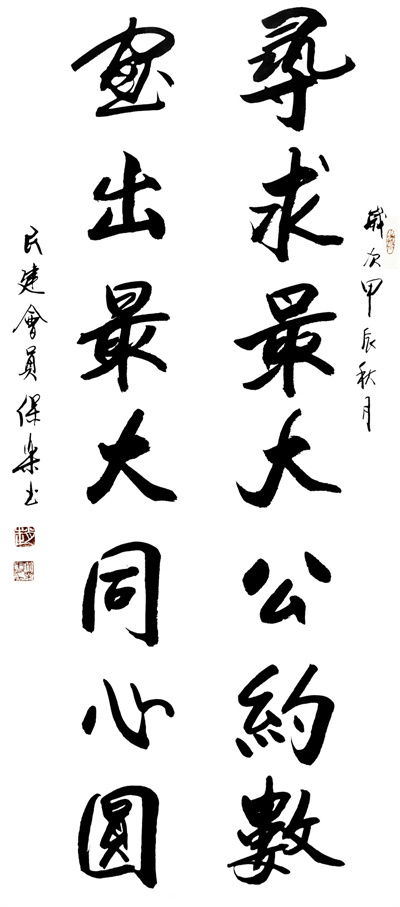 歲次甲辰秋月
尋求最大公約數
畫出最大同心圓
民建會員保樂书